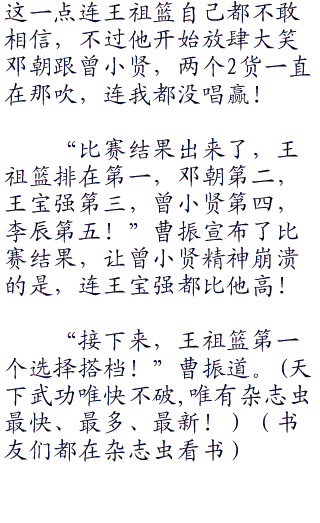 这一点连王祖篮自己都不敢
相信，不过他开始放肆大笑
邓朝跟曾小贤，两个2货一直
在那吹，连我都没唱赢！
“比赛结果出来了，王
祖篮排在第一，邓朝第二，
王宝强第三，曾小贤第四，
李辰第五！”曹振宣布了比
赛结果，让曾小贤精神崩溃
的是，连王宝强都比他高！
“接下来，王祖篮第一
个选择搭档！”曹振道。(天
下武功唯快不破,唯有杂志虫
最快、最多、最新！）（书
友们都在杂志虫看书）